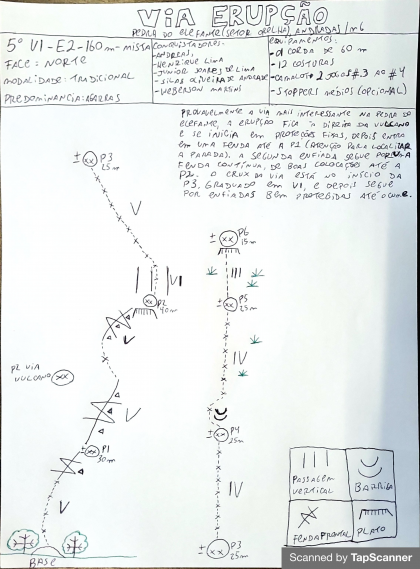 VIA ERUPÇÃO
PEDRA DO ELEFANTE (SETOR ORELHA) ANDRADAS/MG
5º VI - E2 - 160m - MISSA
FACE: NORTE
MODALIDADE: TRADICIONAL
PREDOMINANCIA: AGARRAS
CONQUISTADORES:
- ANDREAS,
- HENRIQUE LIMA
- JUNIOR SOARES DE LIMA
- SILAS OLIVEIRA DE ANDRADE
- WEBERSON MARTINS
EQUIPAMENTOS:
- 01 CORDA DE 60 m
- 12 COSTURAS
- CAMALOTS 2 JOGOS #.3 AO #4
- STOPPERS MÉDIOS (OPCIONAL)
PROVAVELMENTE A VIA MAIS INTERESSANTE NA PEDRA DO
ELEFANTE, A ERUPÇÃO FICA À DIREITA DA VULCANO
E SE INICIA EM PROTEÇÕES FIXAS, DEPOIS ENTRA
EM UMA FENDA ATÉ A P1 (ATENÇÃO PARA LOCALIZAR
A PARADA). A SEGUNDA ENFIADA SEGUE POR UMA
FENDA CONTÍNUA, DE BOAS COLOCAÇÕES ATÉ A
P2. O CRUX DA VIA ESTÁ NO INÍCIO DA
P3, GRADUADO EM VI, E DEPOIS SEGUE
POR ENFIADAS BEM PROTEGIDAS ATÉ O CUME.
± XX P3
25m
V
VI
XX P2
40m
V
P2 VIA
VULCANO XX
V
± XX P1
30m
V
BASE
P6
± XX 15m
III
± XX P5
25m
IV
± XX P4
25m
IV
± XX P3
25m
PASSAGEM
VERTICAL
BARRIGA
FENDA FRONTAL
PLATÔ
Scanned by TapScanner